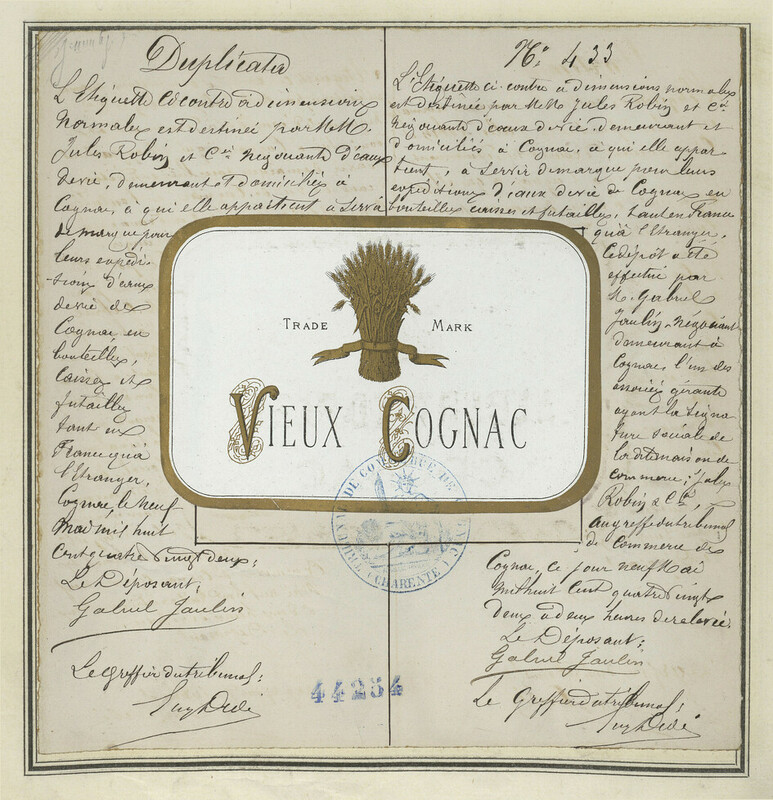 Duplicata
L'Etiquette ci contre à dimensions
normales est destinée par M.M.
Jules Robin et Cie Négociants d'eaux
de vie, demeurant et domiciliés à
Cognac, à qui elle appartient à servir
de marque pour
leurs expédi-
tions d'eaux
de vie de
Cognac en
bouteilles,
caisses et
futailles
tant en
France qu'à
l'Etranger,
Cognac, le neuf
Mai mil huit
cent quatre vingt deux;
Le Déposant;
Gabriel Jaulin
Le Greffier du tribunal;
No 433
L'Etiquette ci contre à dimensions normales
est destinée par M.M. Jules Robin et Cie
Négociants d'eaux de vie, demeurant et
domiciliés à Cognac, à qui elle appar
tient, à servir de marque pour leurs
expéditions d'eaux de vie de Cognac en
bouteilles caisses et futailles, tant en France
qu'à l'Etranger.
Ce dépôt a été
effectué par
M. Gabriel
Jaulin, Négociant
demeurant à
Cognac, l'un des
associés gérants
ayant la signa
ture sociale de
la dite maison de
commerce; Jules
Robin & Cie,
au greffe du tribunal
de Commerce de
Cognac, ce jour neuf Mai
mil huit Cent quatre vingt
deux à deux heures de relevée.
Le Déposant;
Gabriel Jaulin
Le Greffier du tribunal;
TRADE MARK
VIEUX COGNAC
TRIBUNAL DE COMMERCE DE COGNAC
(CHARENTE)
44254